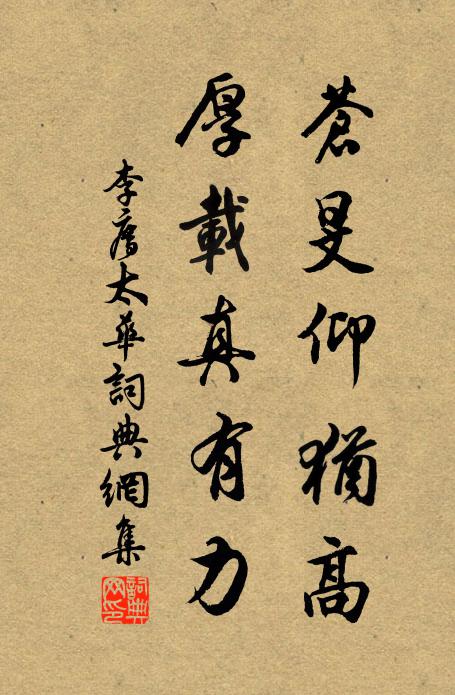 蒼旻仰猶高
厚載真有力
李廌太華詞典網集
詞典网印